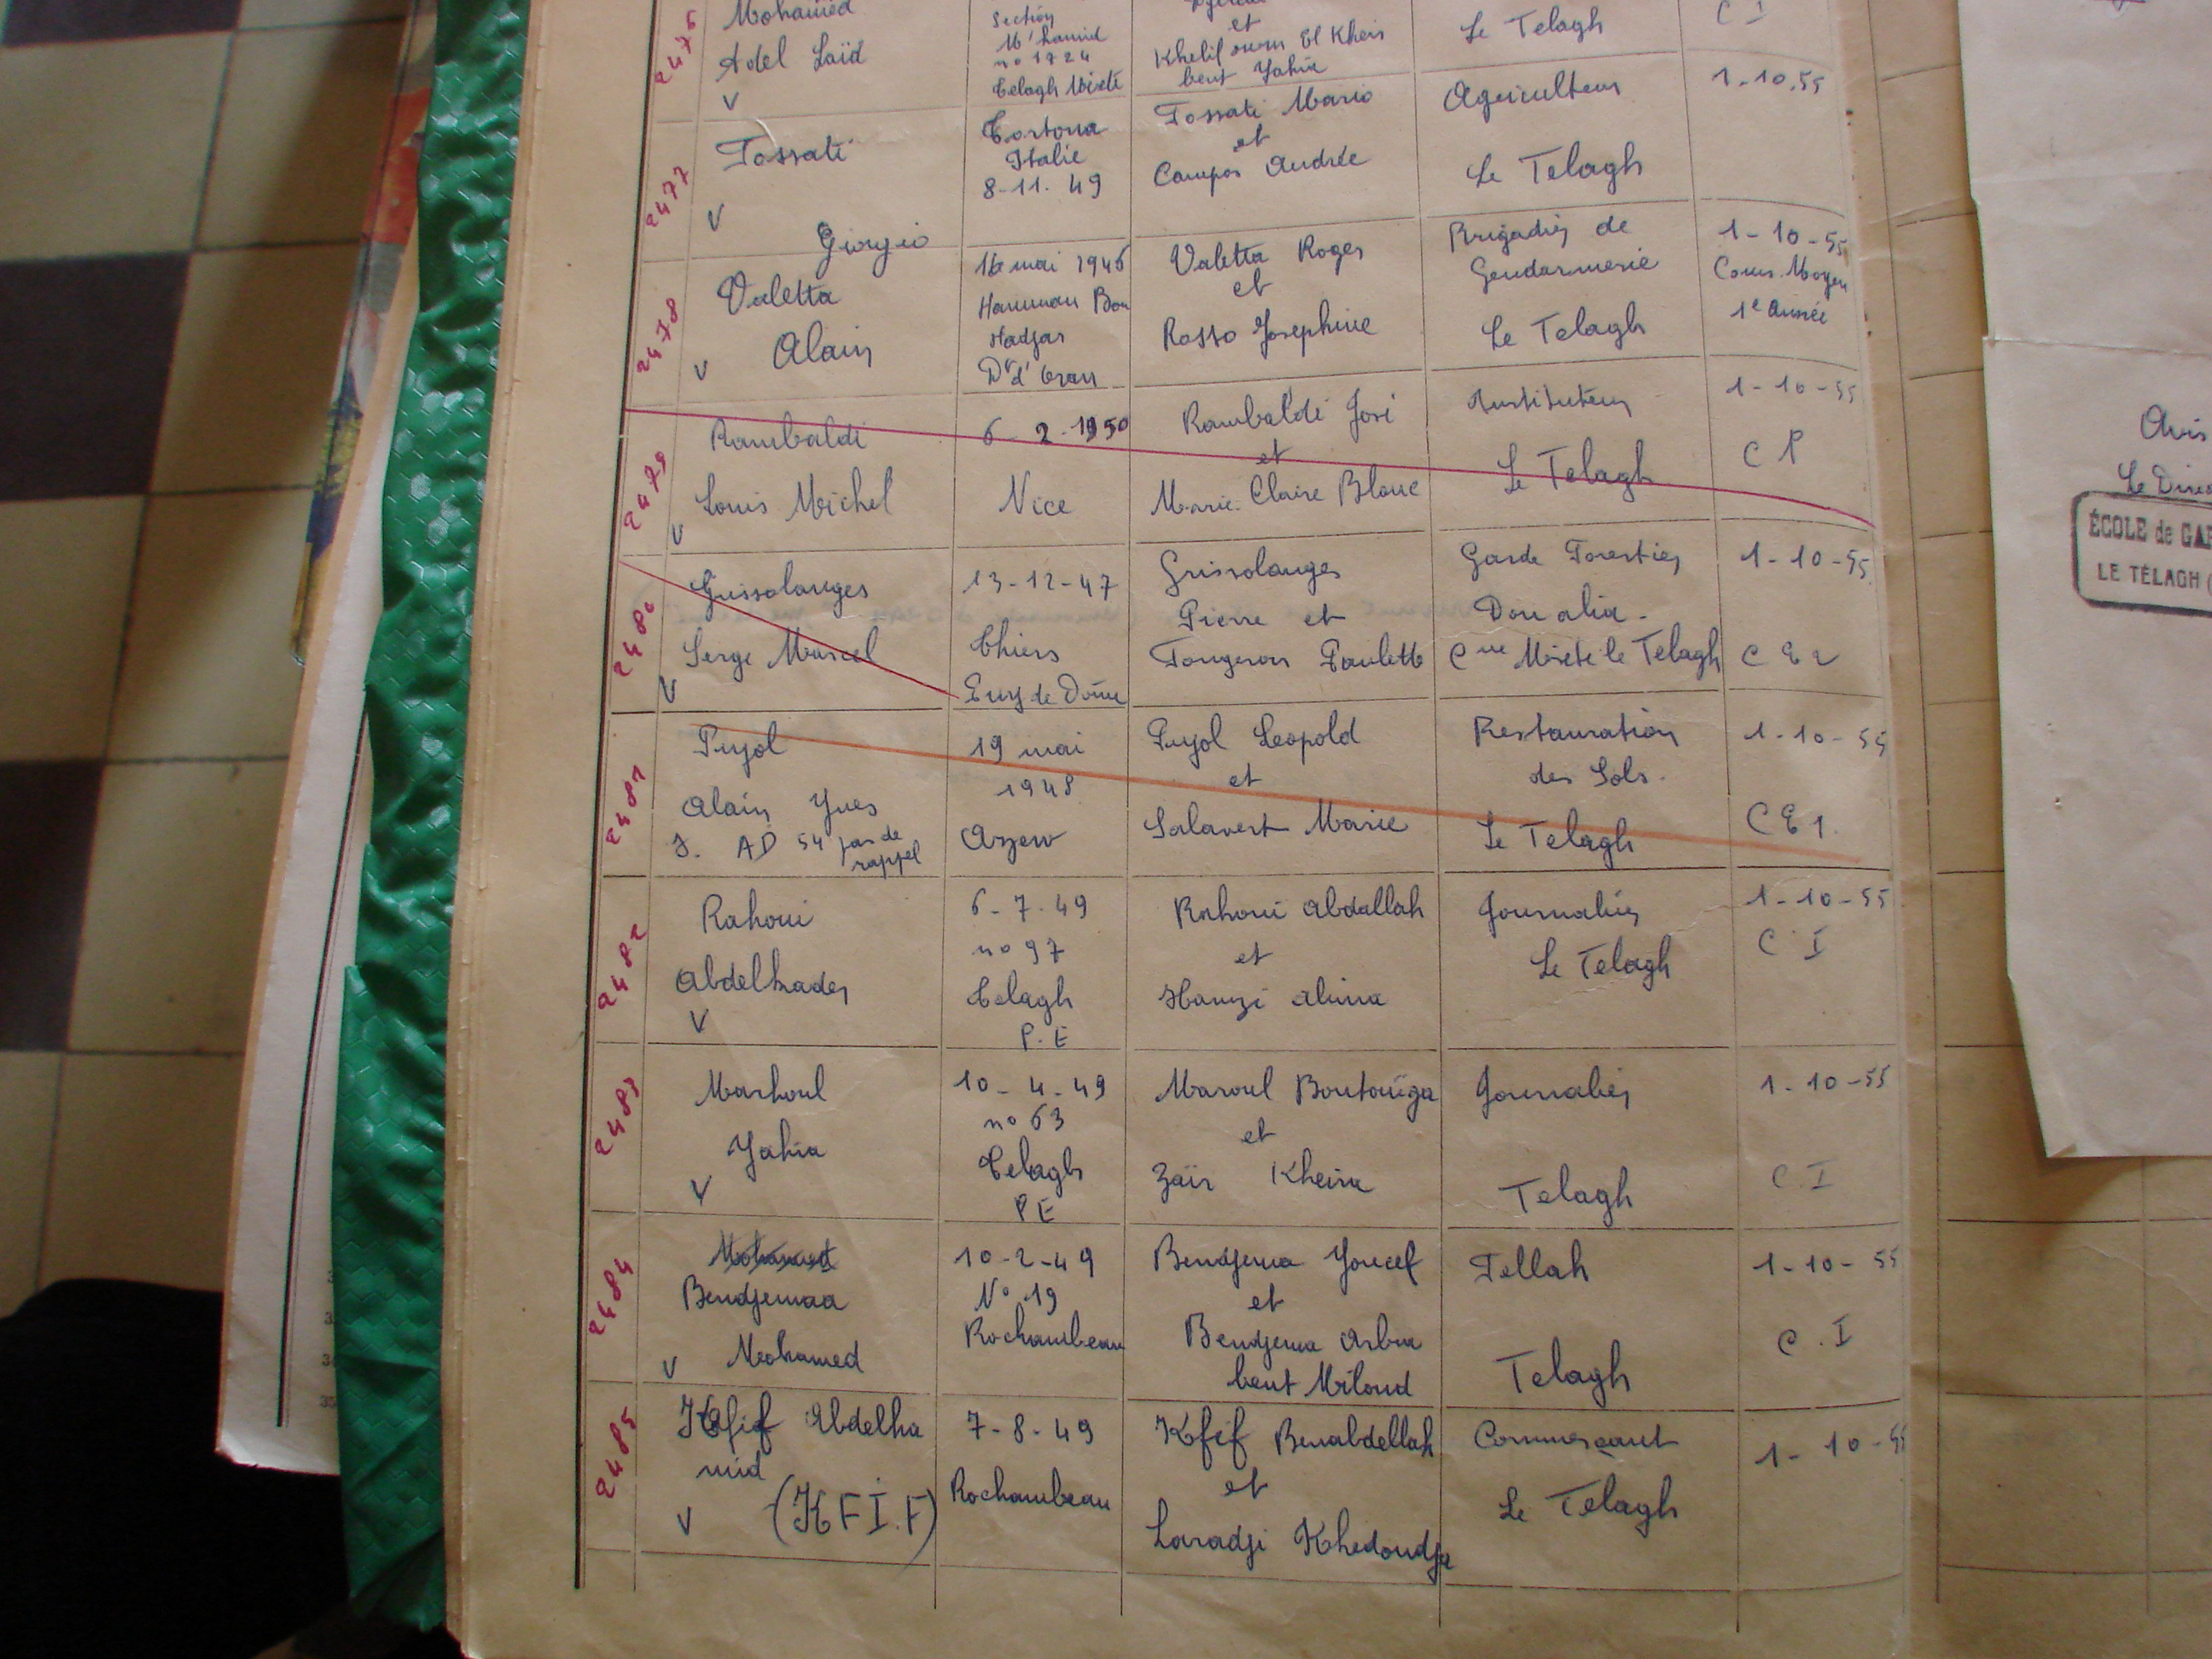 2476
Mohamed
Adel Laïd
V
Section
M'hamid
no 1724
Telagh Mixte
et
Khelif oum El Kheir
bent Yahia
Le Telagh
C I
2477
Fossati
Giorgio
V
Tortona
Italie
8-11-49
Fossati Mario
et
Campos Andrée
Agriculteur
Le Telagh
1-10.55
2478
Valetta
Alain
V
16 mai 1946
Hammam Bou
Hadjar
Dt d'Oran
Valetta Roger
et
Rosso Josephine
Brigadier de
Gendarmerie
Le Telagh
1-10-55
Cours Moyen
1e Année
2479
Rambaldi
Louis Michel
V
6-2-1950
Nice
Rambaldi José
et
Marie-Claire Blanc
Instituteur
Le Telagh
1-10-55
C P
2480
Grissolanges
Serge Marcel
V
13-12-47
Thiers
Puy de Dôme
Grissolanges
Pierre et
Fougerou Paulette
Garde Forestier
Dou alia -
Cne Mixte le Telagh
1-10-55
C E 2
2481
Pujol
Alain Yves
J. AD 54 pas de
rappel
19 mai
1948
Arzew
Pujol Leopold
et
Salavert Marie
Restauration
des Sols.
Le Telagh
1-10-55
C E 1.
2482
Rahoui
Abdelkader
V
6-7-49
no 97
Telagh
P.E
Rahoui Abdallah
et
Hamzi Alima
Journalier
Le Telagh
1-10-55
C I
2483
Marhoul
Yahia
V
10-4-49
no 63
Telagh
P E
Maroul Boutouïga
et
Zaïr Kheira
Journalier
Telagh
1-10-55
C.I
2484
Mohamed
Bendjemaa
Mohamed
V
10-2-49
No 19
Rochambeau
Bendjema Youcef
et
Bendjema Arbia
bent Miloud
Fellah
Telagh
1-10-55
C.I
2485
Kfif Abdelha
mid
V (KFI.F)
7-8-49
Rochambeau
Kfif Benabdellah
et
Laradji Khedoudja
Commerçant
Le Telagh
1-10-55
Avis
Le Direc
ÉCOLE de GAR
LE TÉLAGH (